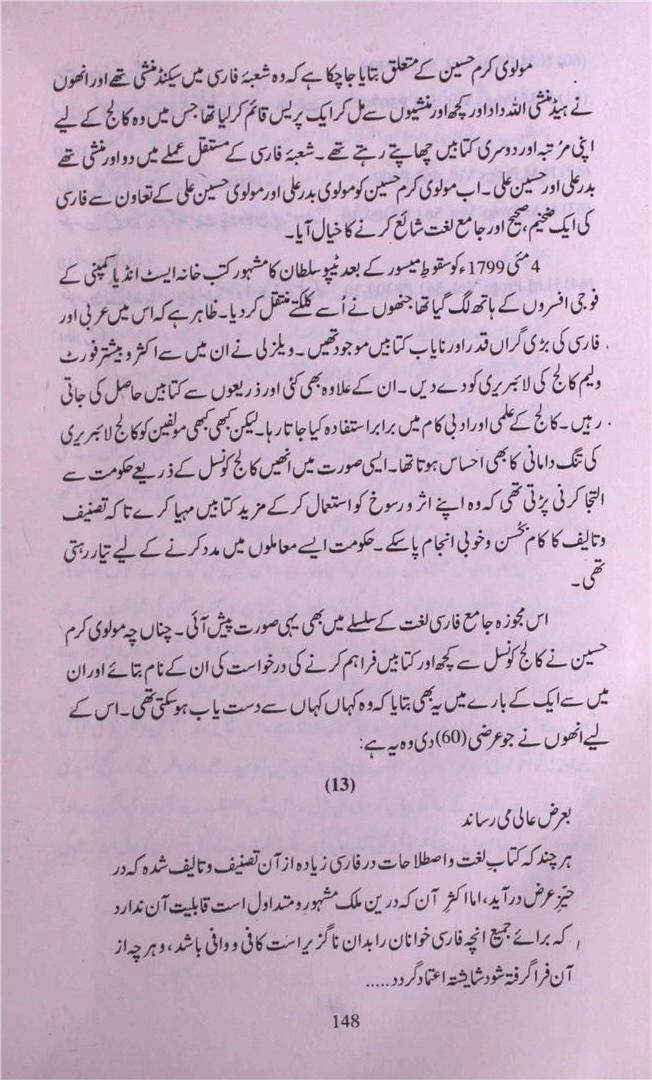 مولوی کرم حسین کے متعلق بتایا جا چکا ہے کہ وہ شعبۂ فارسی میں سیکنڈ منشی تھے اور انھوں
نے ہیڈ منشی اللہ داد اور کچھ اور منشیوں سے مل کر ایک پریس قائم کر لیا تھا جس میں وہ کالج کے لیے
اپنی مرتبہ اور دوسری کتابیں چھاپتے رہتے تھے۔ شعبۂ فارسی کے مستقل عملے میں دو اور منشی تھے
بدر علی اور حسین علی۔ اب مولوی کرم حسین کو مولوی بدر علی اور مولوی حسین علی کے تعاون سے فارسی
کی ایک ضخیم، صحیح اور جامع لغت شائع کرنے کا خیال آیا۔
4 مئی 1799ء کو سقوطِ میسور کے بعد ٹیپو سلطان کا مشہور کتب خانہ ایسٹ انڈیا کمپنی کے
فوجی افسروں کے ہاتھ لگ گیا تھا، جنھوں نے اُسے کلکتے منتقل کر دیا۔ ظاہر ہے کہ اس میں عربی اور
فارسی کی بڑی گراں قدر اور نایاب کتابیں موجود تھیں۔ ویلزلی نے ان میں سے اکثر و بیشتر فورٹ
ولیم کالج کی لائبریری کو دے دیں۔ ان کے علاوہ بھی کئی اور ذریعوں سے کتابیں حاصل کی جاتی
رہیں۔ کالج کے علمی اور ادبی کام میں برابر استفادہ کیا جاتا رہا۔ لیکن کبھی کبھی مولفین کو کالج لائبریری
کی تنگ دامانی کا بھی احساس ہوتا تھا۔ ایسی صورت میں انھیں کالج کونسل کے ذریعے حکومت سے
التجا کرنی پڑتی تھی کہ وہ اپنے اثر و رسوخ کو استعمال کر کے مزید کتابیں مہیا کرے تا کہ تصنیف
و تالیف کا کام بحُسن و خوبی انجام پا سکے۔ حکومت ایسے معاملوں میں مدد کرنے کے لیے تیار رہتی
تھی۔
اس مجوزہ جامع فارسی لغت کے سلسلے میں بھی یہی صورت پیش آئی۔ چناں چہ مولوی کرم
حسین نے کالج کونسل سے کچھ اور کتابیں فراہم کرنے کی درخواست کی ان کے نام بتائے اور ان
میں سے ایک کے بارے میں یہ بھی بتایا کہ وہ کہاں کہاں سے دست یاب ہو سکتی تھی۔ اس کے
لیے انھوں نے جو عرضی (60) دی وہ یہ ہے:
(13)
بعرض عالی می رساند
ہر چند کہ کتاب لغت و اصطلاحات در فارسی زیادہ از آن تصنیف و تالیف شدہ کہ در
حیّزِ عرض در آید، اما اکثرِ آن کہ درین ملک مشہور و متداول است قابلیت آن ندارد
کہ برائے جمیع انچہ فارسی خوانان را بدان ناگزیر است کافی و وافی باشد، و ہر چہ از
آن فرا گرفتہ شود شایشتہ اعتماد گردد.....
148